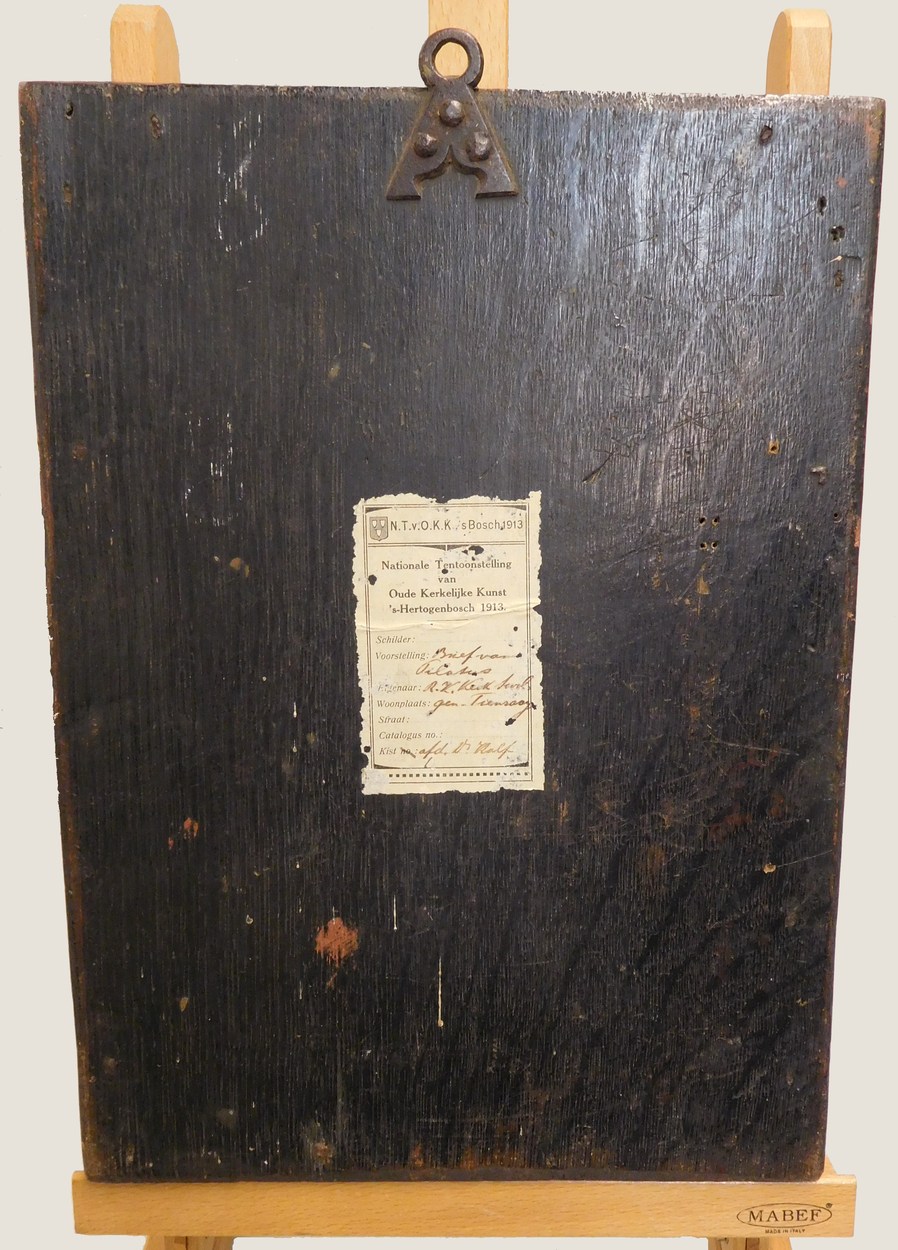 N.T.v.O.K.K. 'sBosch 1913
Nationale Tentoonstelling
van
Oude Kerkelijke Kunst
's-Hertogenbosch 1913.
Schilder:
Voorstelling: Brief van
Pilatus
Eigenaar: R. K. Kerk
Woonplaats: gen-Tienraay
Straat:
Catalogus no.:
Kist no.: afd. Dr
MABEF
MADE IN ITALY